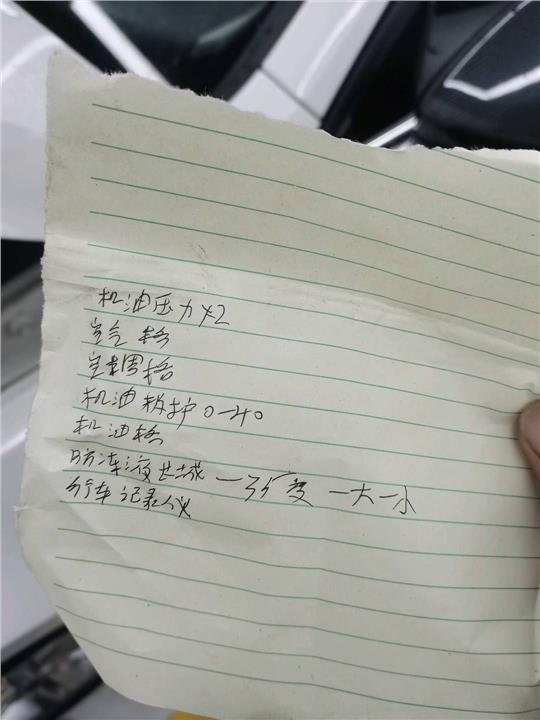 机油压力x2
空气格
空调格
机油教护0-40
机油格
防冻液长城-35度 一大一小
行车记录仪